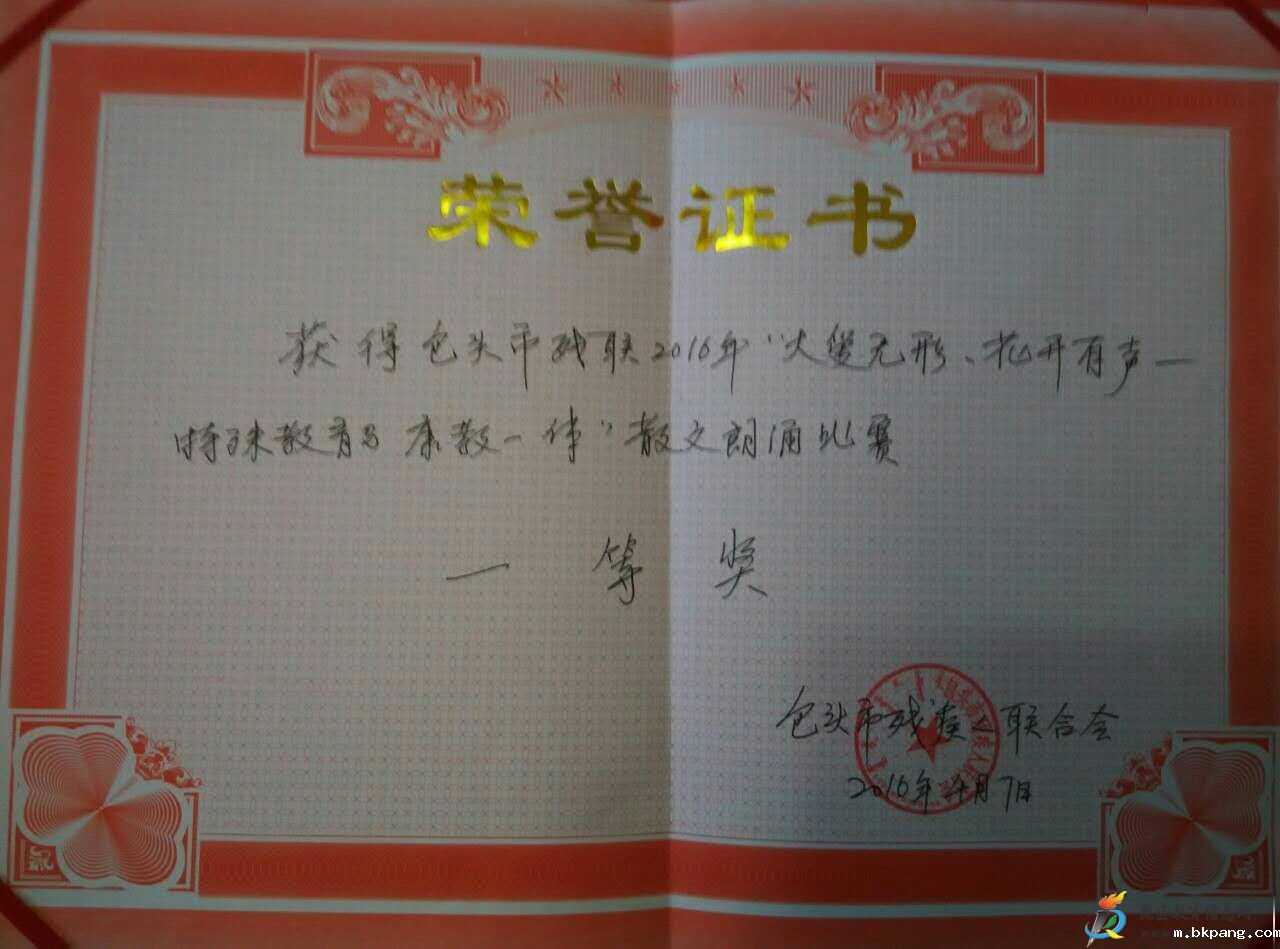 荣誉证书
获得包头市残联2016年“大爱无形、花开有声—
特殊教育与康教一体”散文朗诵比赛
一等奖
包头市残疾人联合会
2016年4月7日
北区教育信息网
www.m.bkpang.com